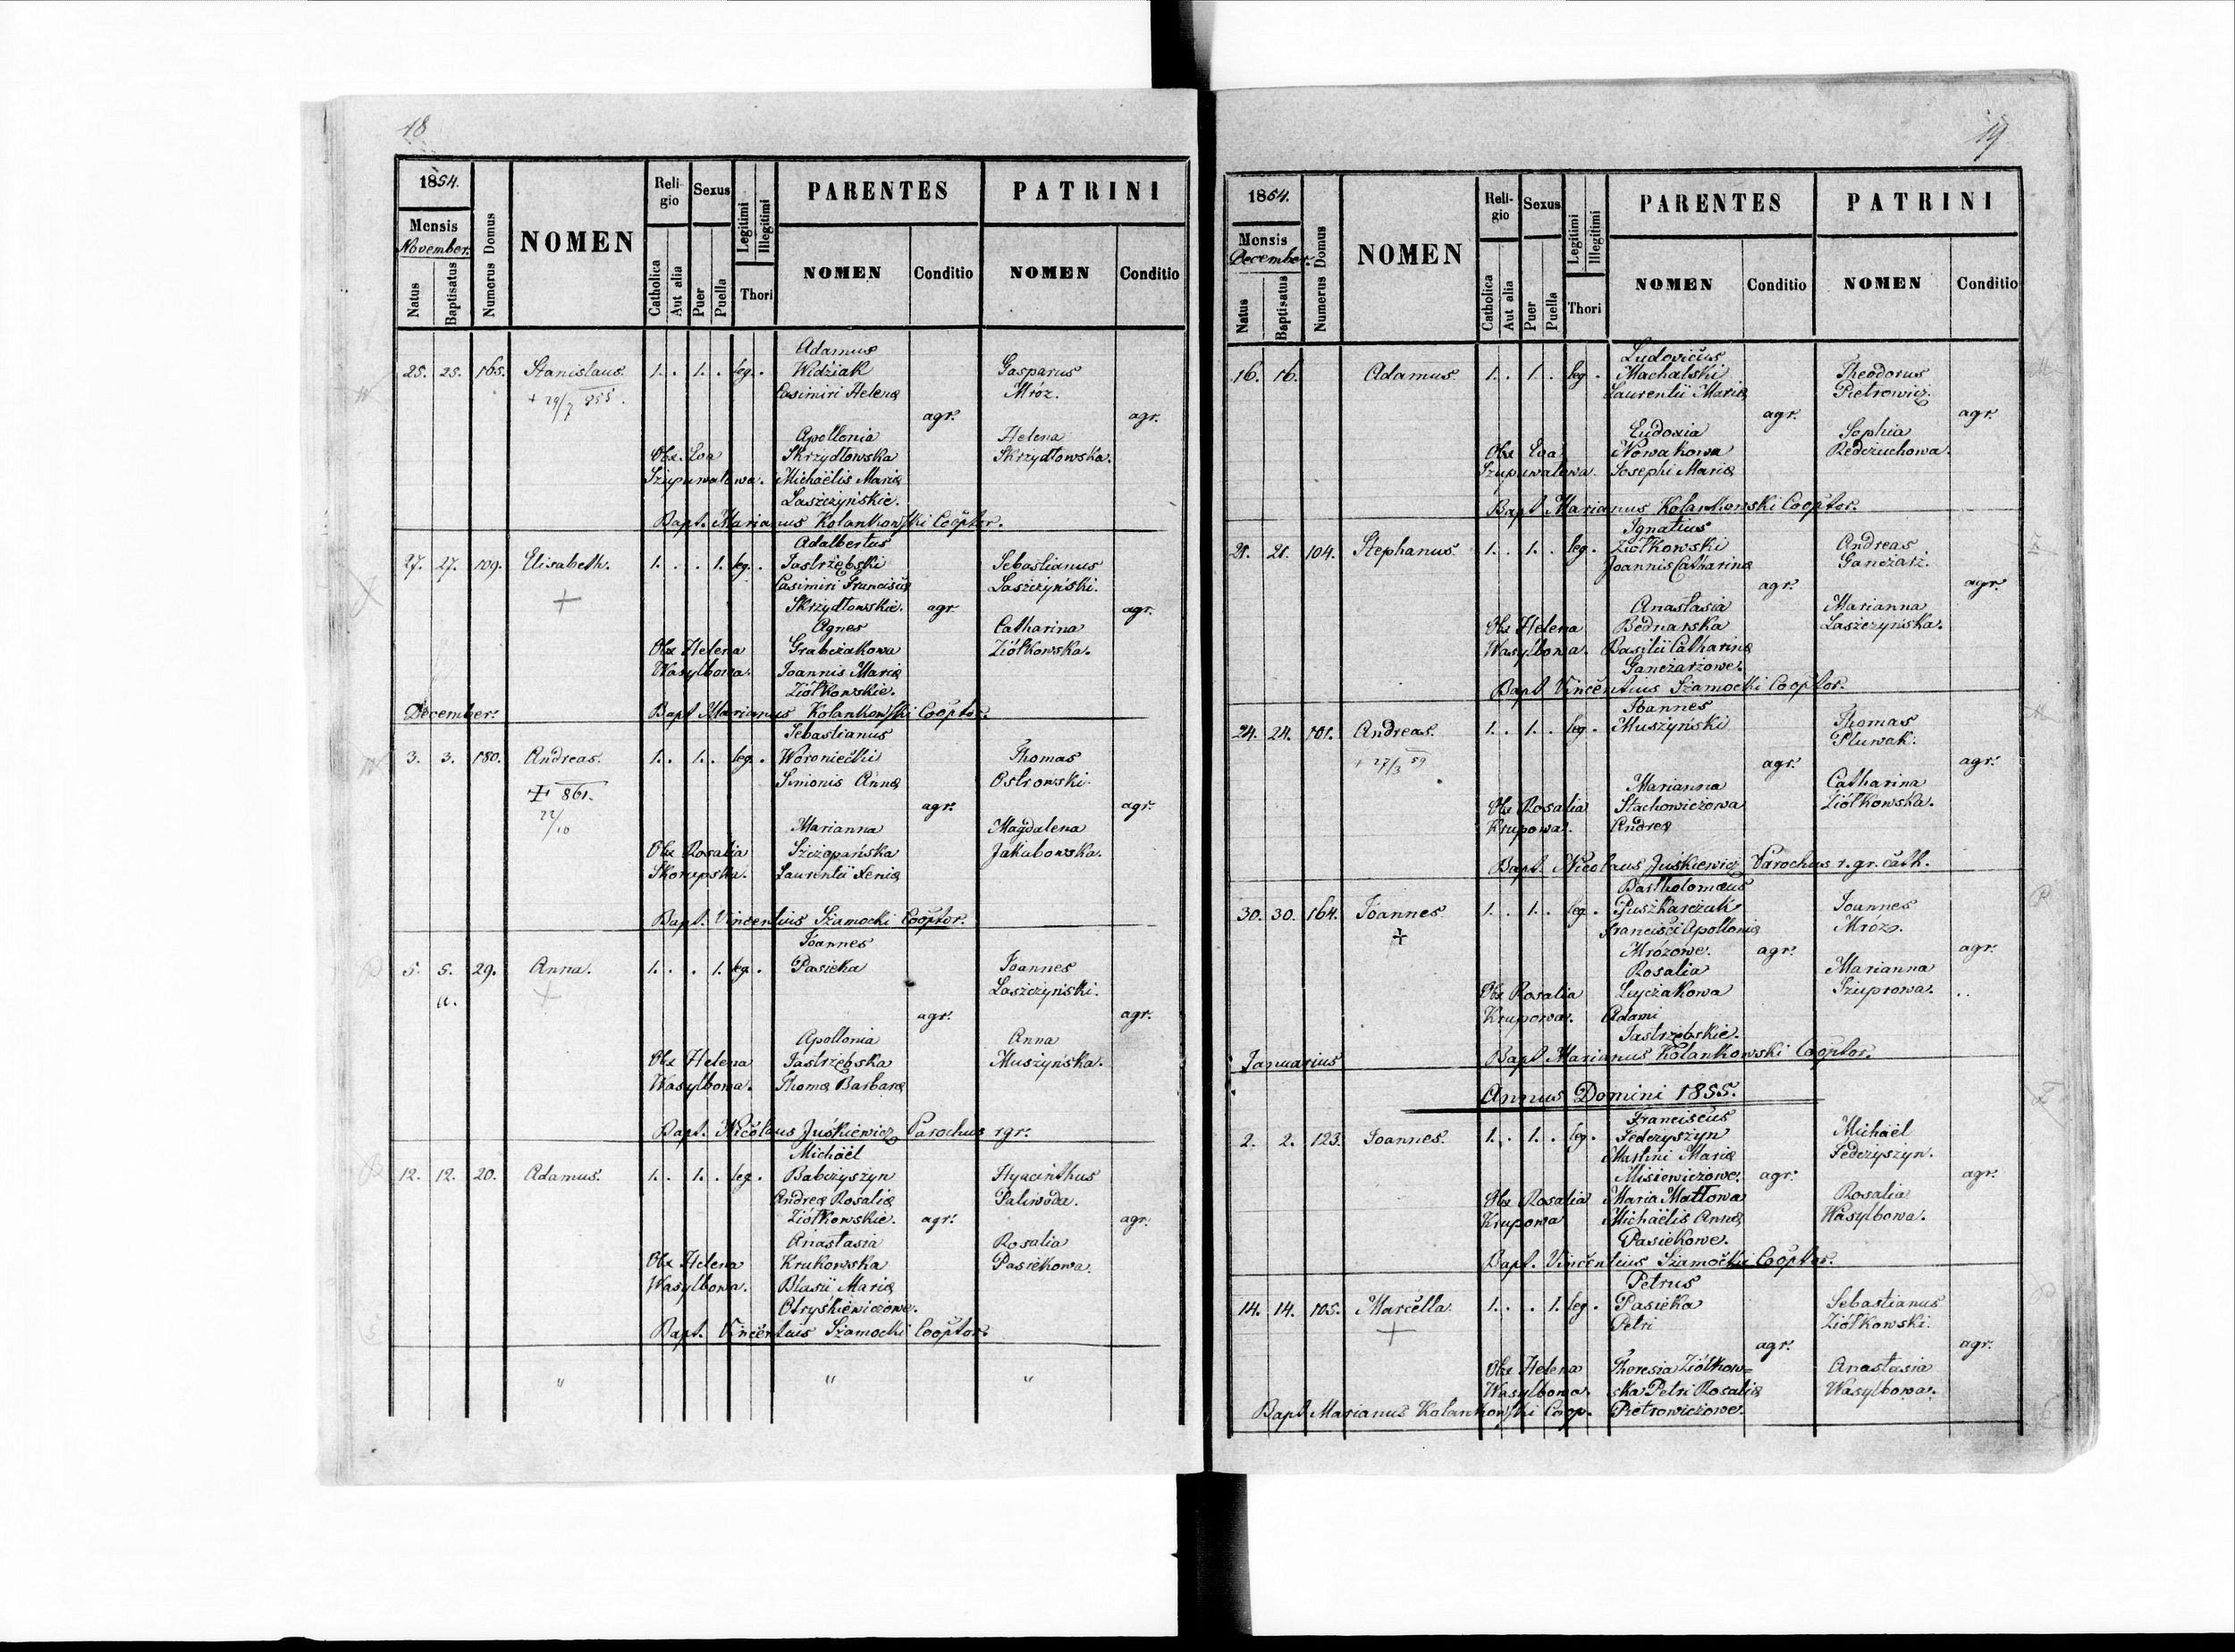 18
1854.
Mensis
November.
Natus
Baptisatus
Numerus Domus
NOMEN
Religio
Catholica
Aut alia
Sexus
Puer
Puella
Legitimi
Illegitimi
Thori
PARENTES
NOMEN
Conditio
PATRINI
NOMEN
Conditio
Adamus
25. 25. 165. Stanislaus. 1. . 1. . leg. . Widziak Gasparus
+ 29/7 855. Casimiri Helenæ Mróz.
agr. agr.
Apollonia Helena
Obx. Eva Skrzydłowska Skrzydłowska.
Szupuwałowa. Michaëlis Mariæ
Laszczyńskie.
Bapt. Marianus Kolankowski Cooptor.
Adalbertus
27. 27. 109. Elisabeth. 1. . . 1. leg. . Jastrzębski Sebastianus
+ Casimiri Franciscæ Laszczyński.
Skrzydłowskie. agr. agr.
Agnes Catharina
Obx Helena Grabczakowa Ziółkowska.
Wasylbowa. Joannis Mariæ
Ziółkowskie.
December. Bapt. Marianus Kolankowski Cooptor.
Sebastianus
3. 3. 180. Andreas. 1. . 1. . leg. . Woroniecki Thomas
+ 861. Simonis Annæ Ostrowski
22/10 agr. agr.
Marianna Magdalena
Obx Rosalia Szczepańska Jakubowska.
Skorupska. Laurentii Xeniæ
Bapt. Vincentius Szamocki Cooptor.
Joannes
5. 5. 29. Anna. 1. . . 1. leg. . Pasieka Joannes
+ Laszczyński.
agr. agr.
Apollonia Anna
Obx Helena Jastrzębska Muszyńska.
Wasylbowa. Thomæ Barbaræ
Bapt. Nicolaus Juśkiewicz Parochus rgr.
Michaël
12. 12. 20. Adamus. 1. . 1. . leg. . Babczyszyn Hyacinthus
Andreæ Rosaliæ Paliwoda.
Ziółkowskie. agr. agr.
Anastasia Rosalia
Obx Helena Krukowska Pasiekowa.
Wasylbowa. Blasii Mariæ
Otryśkiewiczowe.
Bapt. Vincentius Szamocki Cooptor.
" " "
19
1854.
Mensis
December.
Natus
Baptisatus
Numerus Domus
NOMEN
Religio
Catholica
Aut alia
Sexus
Puer
Puella
Legitimi
Illegitimi
Thori
PARENTES
NOMEN
Conditio
PATRINI
NOMEN
Conditio
Ludovicus
16. 16. Adamus. 1. . 1. . leg. . Machalski Theodorus
Laurentii Mariæ Pietrowicz.
agr. agr.
Eudoxia Sophia
Obx Eva Nowakowa Redczuchowa.
Szupuwałowa. Josephi Mariæ
Bapt Marianus Kolankowski Cooptor.
Ignatius
21. 21. 104. Stephanus. 1. . 1. . leg. . Ziółkowski Andreas
Joannis Catharinæ Ganczarz.
agr. agr.
Anastasia Marianna
Obx Helena Bednarska Laszczyńska.
Wasylbowa. Basilii Catharinæ
Ganczarzowe.
Bapt Vincentius Szamocki Cooptor.
Joannes
24. 24. 101. Andreas. 1. . 1. . leg. . Muszyński Thomas
+ 27/3 59 Pluwak.
agr. agr.
Marianna Catharina
Obx Rosalia Stachowiczowa Ziółkowska.
Krupowa. Andreæ
Bapt. Nicolaus Juśkiewicz Parochus r. gr. cath.
Bartholomæus
30. 30. 164. Joannes. 1. . 1. . leg. . Puszkarczuk Joannes
+ Francisci Apolloniæ Mróz.
Mrózowe. agr. agr.
Rosalia Marianna
Obx Rosalia Łuyczakowa Szuprowa.
Krupowa. Adami
Jastrzębskie.
Januarius Bapt Marianus Kolankowski Cooptor.
Annus Domini 1855.
Franciscus
2. 2. 123. Joannes. 1. . 1. . leg. . Fedczyszyn Michaël
Martini Mariæ Fedczyszyn.
Misiewiczowe. agr. agr.
Obx Rosalia Maria Matłowa Rosalia
Krupowa Michaëlis Annæ Wasylbowa.
Pasiekowe.
Bapt. Vincentius Szamocki Cooptor.
Petrus
14. 14. 105. Marcella. 1. . . 1. leg. . Pasieka Sebastianus
+ Petri Ziółkowski.
agr. agr.
Obx Helena Theresia Ziółkow= Anastasia
Wasylbowa. ska Petri Rosaliæ Wasylbowa.
Bapt Marianus Kolankowski Coop. Pietrowiczowe.